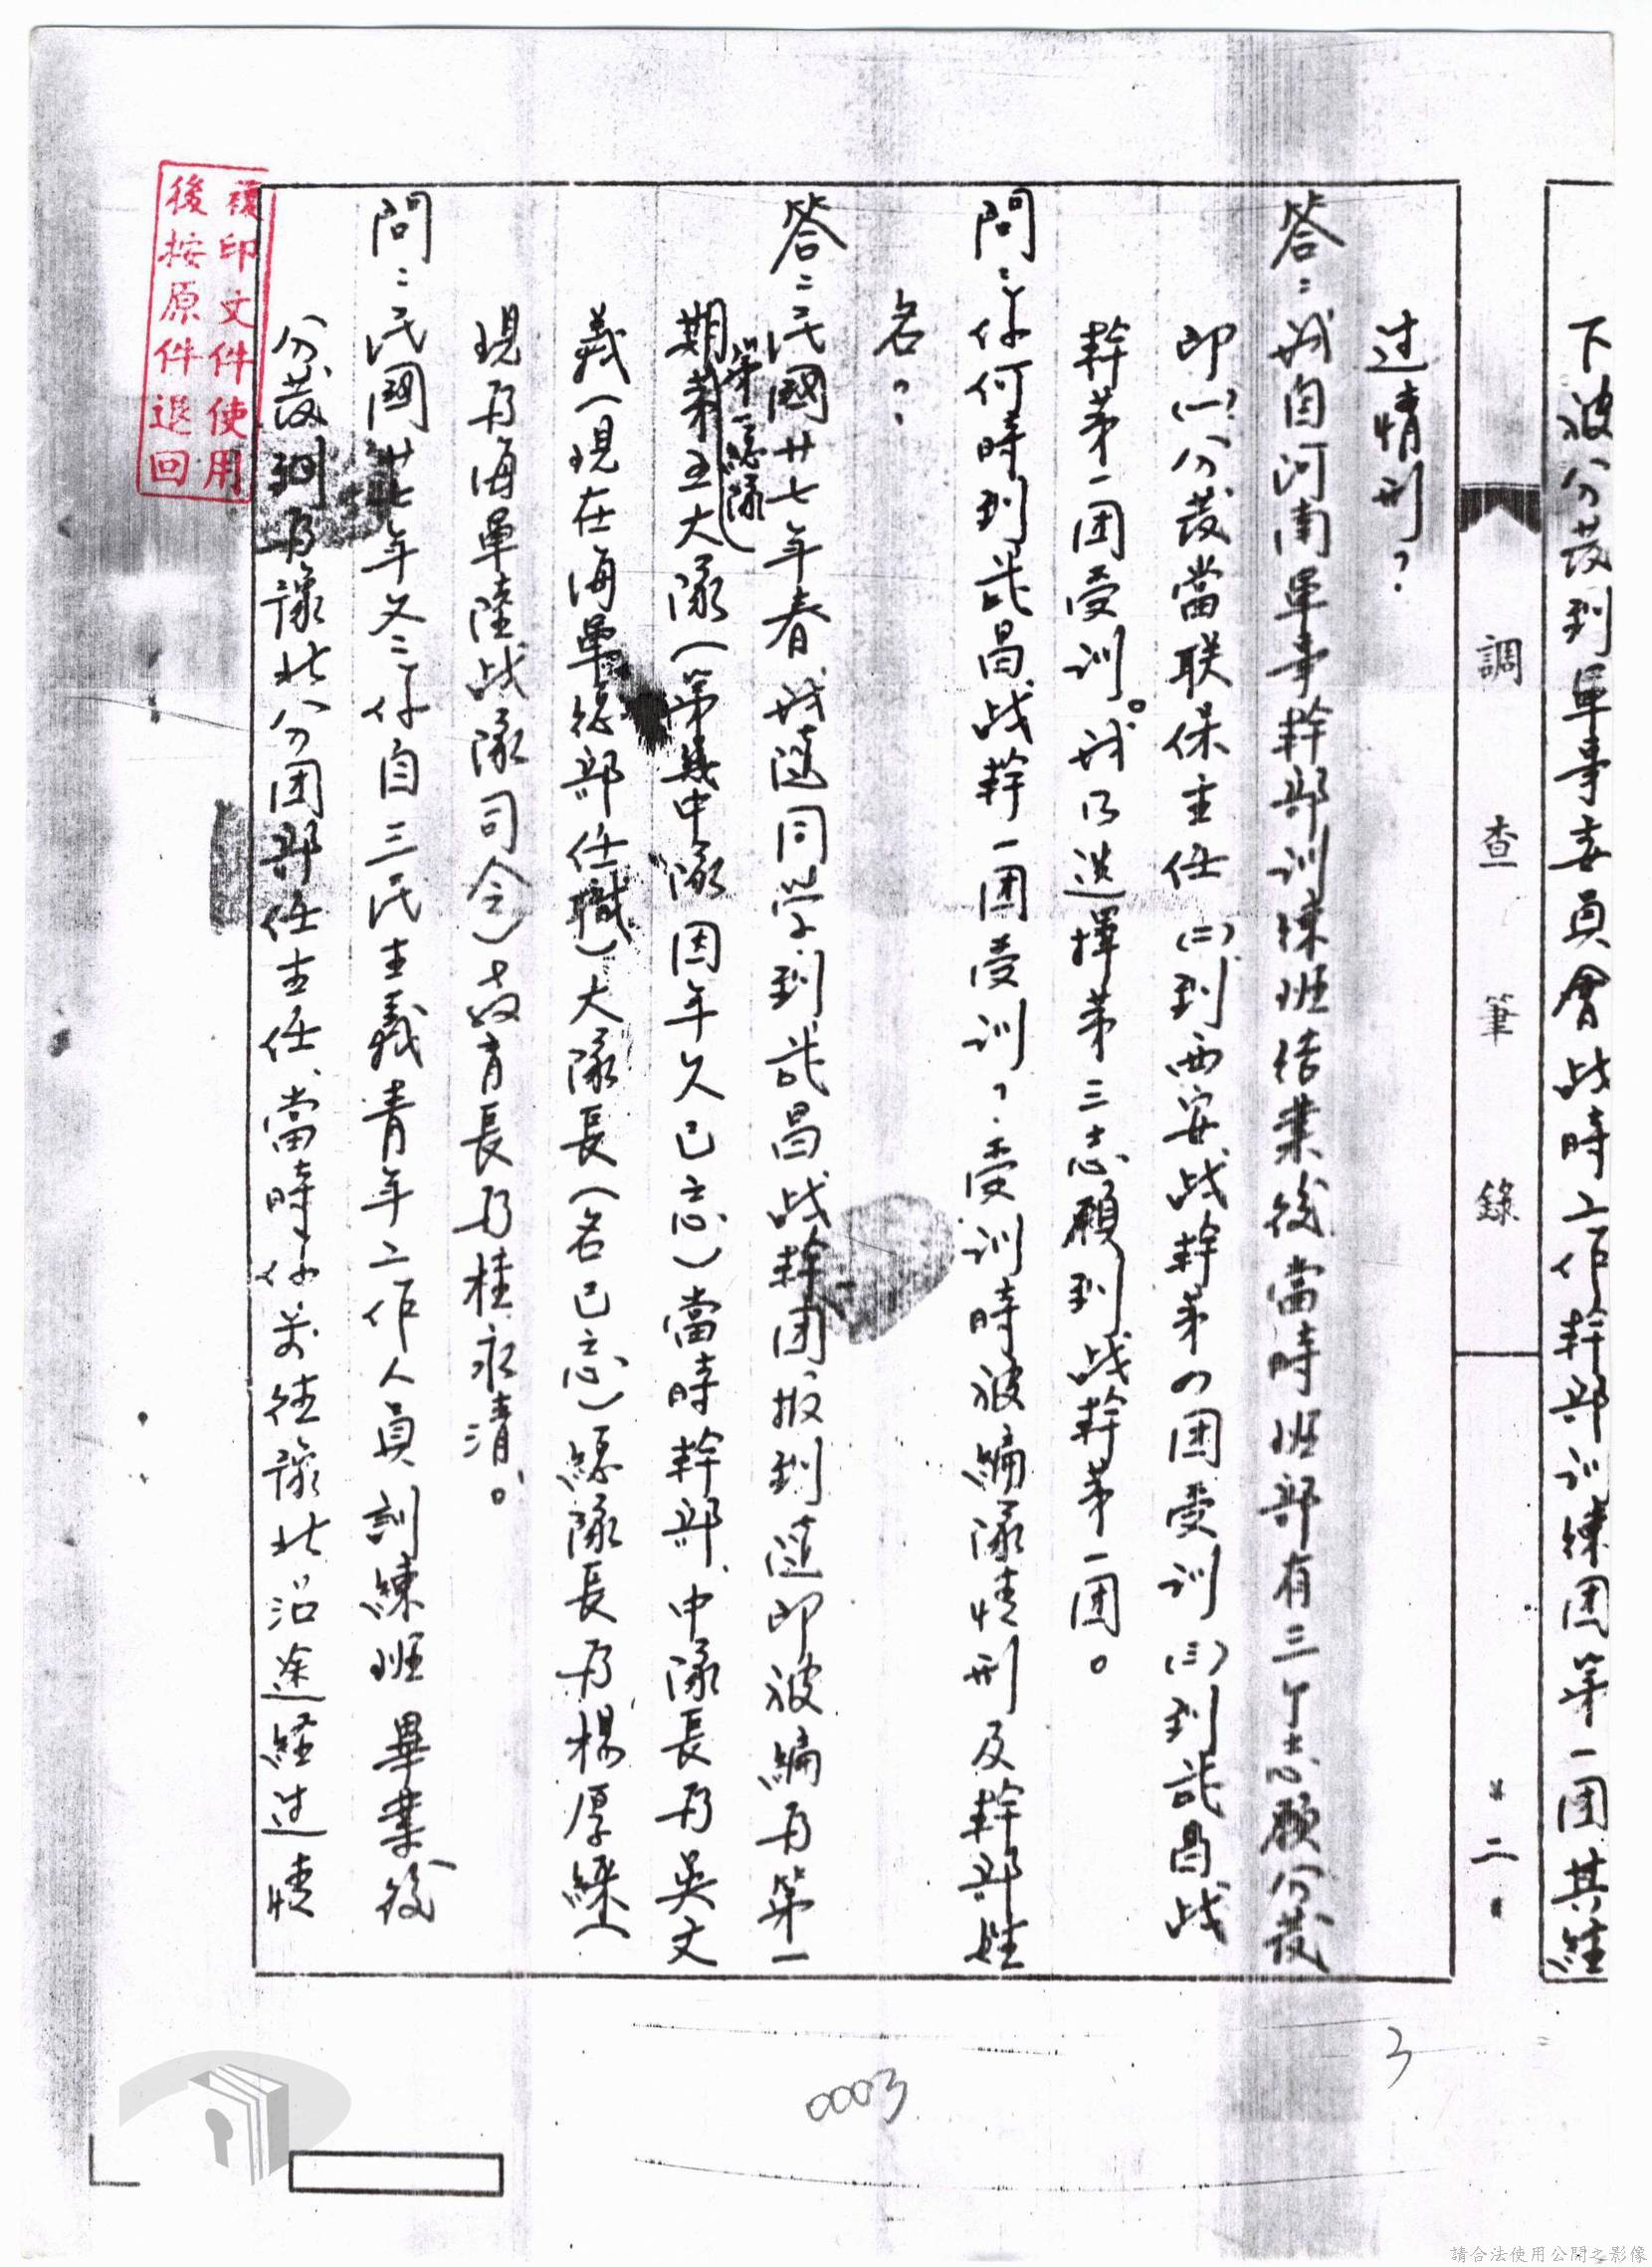 下被分裝到軍事委員會战時工作幹部訓練团第一团其經
調查筆錄
二
过情形？
答：我自河南軍事幹部訓練班結業後當時班部有三个志願分發
即(一)分發當联保主任(二)到西安战幹第四团受訓(三)到武昌战
幹第一团受訓。我乃选擇第三志願到战幹第一团。
問：你何時到武昌战幹一团受訓？受訓時被編隊情形及幹部姓
名？
答：民國廿七年春我随同学到武昌战幹团，报到随即被編为第一
第一總隊
期第五大隊(第幾中隊因年久已忘)當時幹部、中隊長为吳文
義(現在海軍總部任職)大隊長(名已忘)總隊長为楊厚綵(
現为海軍陸战隊司令)教育長为桂永清。
問：民國廿七年冬你自三民主義青年工作人員訓練班畢業後
分發到为豫北分团部任主任、當時你前往豫北沿途經过情
複印文件使用
後按原件退回
3
0003
請合法使用公開之影像